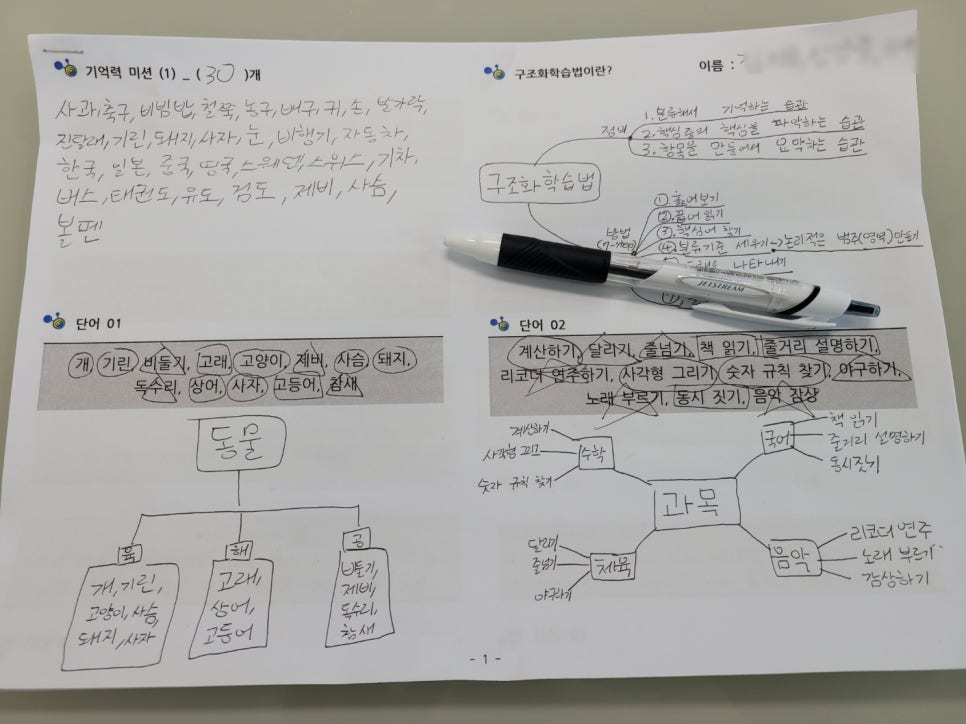 기억력 미션 (1) _ (30)개
사과, 축구, 비빔밥, 철쭉, 농구, 배구, 귀, 손, 발가락,
진달래, 기린, 돼지, 사자, 눈, 비행기, 자동차,
한국, 일본, 중국, 영국, 스웨덴, 스위스, 기차,
버스, 태권도, 유도, 검도, 제비, 사슴,
볼펜
구조화학습법이란?
이름 :
구조화학습법
정의
1. 분류해서 기억하는 습관
2. 핵심중의 핵심을 파악하는 습관
3. 항목을 만들어서 요약하는 습관
방법
(7-step)
① 훑어보기
②. 끊어 읽기
③. 핵심어 찾기
④. 분류기준 세우기→논리적은 범주(영역)만들기
나타내기
JETSTREAM
단어 01
개, 기린, 비둘기, 고래, 고양이, 제비, 사슴, 돼지,
독수리, 상어, 사자, 고등어, 참새
동물
육
개, 기린,
고양이, 사슴,
돼지, 사자
해
고래,
상어,
고등어
공
비둘기,
제비,
독수리,
참새
단어 02
계산하기, 달리기, 줄넘기, 책 읽기, 줄거리 설명하기,
리코더 연주하기, 사각형 그리기, 숫자 규칙 찾기, 야구하기,
노래 부르기, 동시 짓기, 음악 감상
과목
수학
계산하기
사각형 그리기
숫자 규칙 찾기
국어
책 읽기
줄거리 설명하기
동시짓기
체육
달리기
줄넘기
야구하기
음악
리코더 연주
노래 부르기
감상하기
- 1 -